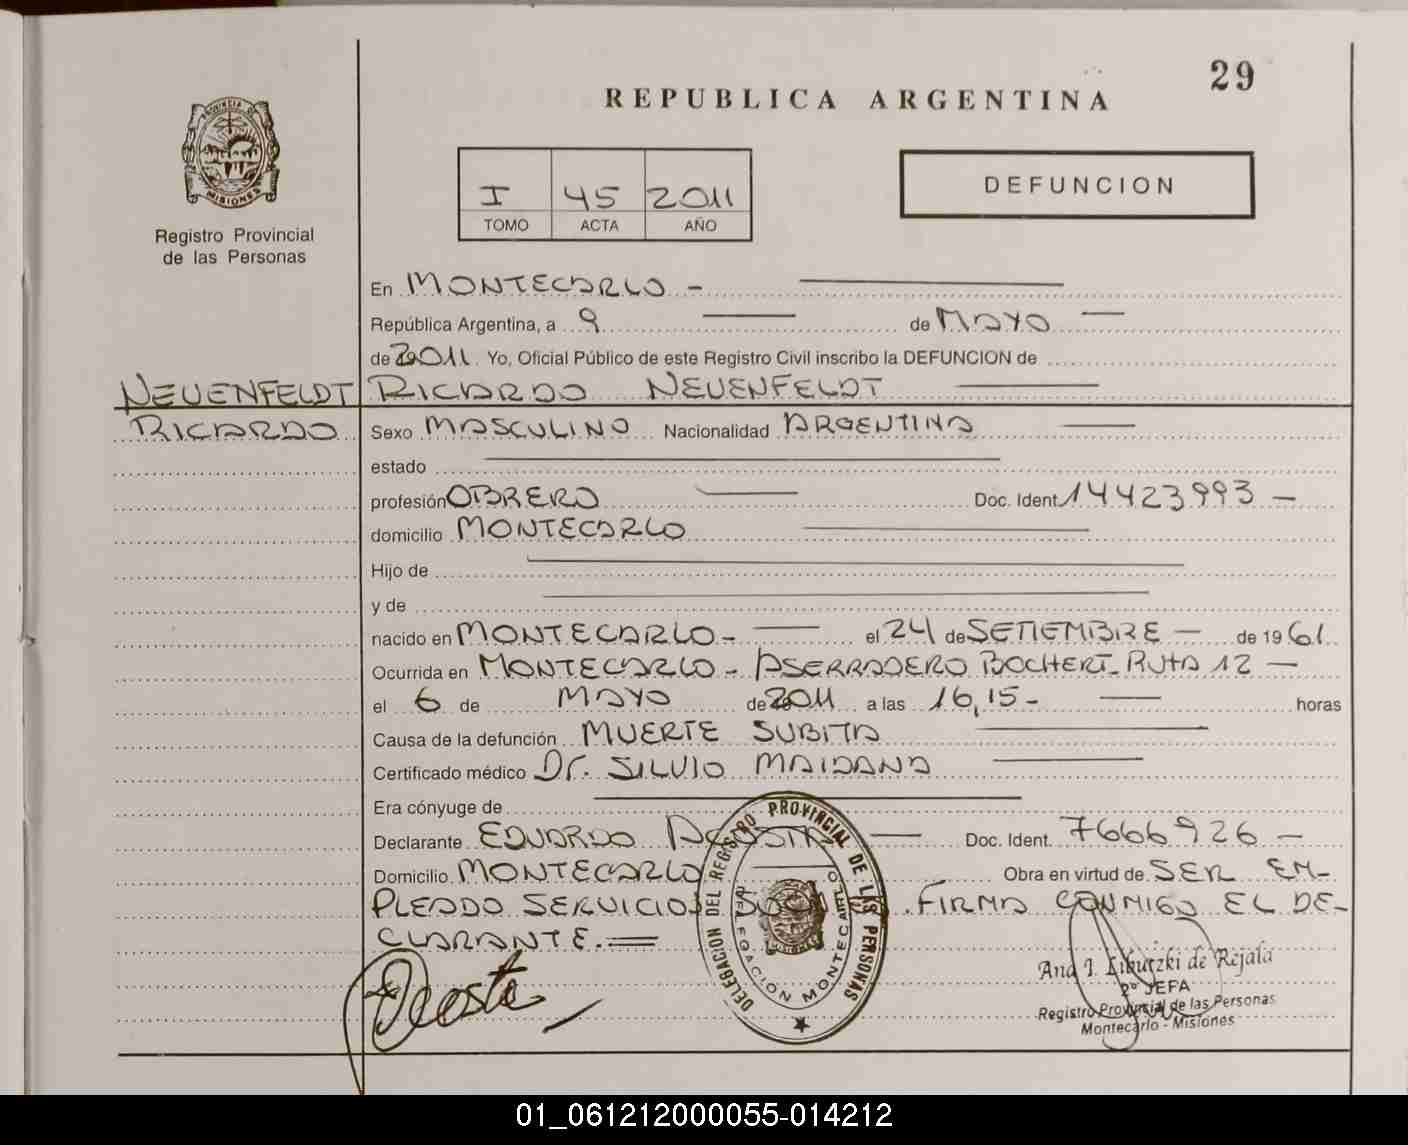 29
REPUBLICA ARGENTINA
PROVINCIA DE
MISIONES
Registro Provincial
de las Personas
I 45 2011
TOMO ACTA AÑO
DEFUNCION
En MONTECARLO -
República Argentina, a 9 de MAYO
de 2011 Yo, Oficial Público de este Registro Civil inscribo la DEFUNCION de
NEUENFELDT RICARDO NEUENFELDT
RICARDO Sexo MASCULINO Nacionalidad ARGENTINA
estado
profesión OBRERO Doc. Ident. 14423993 -
domicilio MONTECARLO
Hijo de
y de
nacido en MONTECARLO - el 24 de SETIEMBRE - de 1961
Ocurrida en MONTECARLO - ASERRADERO BOCHERT - RUTA 12 -
el 6 de MAYO de 2011 a las 16,15 - horas
Causa de la defunción MUERTE SUBITA
Certificado médico Dr. SILVIO MAIDANA
Era cónyuge de
Declarante EDUARDO ACOSTA Doc. Ident. 7666926 -
Domicilio MONTECARLO Obra en virtud de SER EM-
PLEADO SERVICIOS FIRMA CONMIGO EL DE-
CLARANTE.
Acosta
DELEGACION DEL REGISTRO PROVINCIAL DE LAS PERSONAS
DELEGACION MONTECARLO
Ana I. Libutzki de Rejala
2° JEFA
Registro Provincial de las Personas
Montecarlo - Misiones
01_061212000055-014212